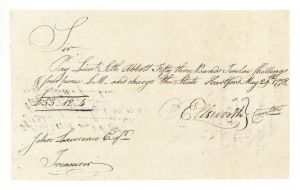 Sir
Pay Lieut. Seth Abbott Fifty three Pounds Twelve Shillings
& four pence L.M. and charge the State. Hartford May 29th 1778.
£53.12.4
E Elsworth Comtee
John Lawrence Esqr.
Treasurer